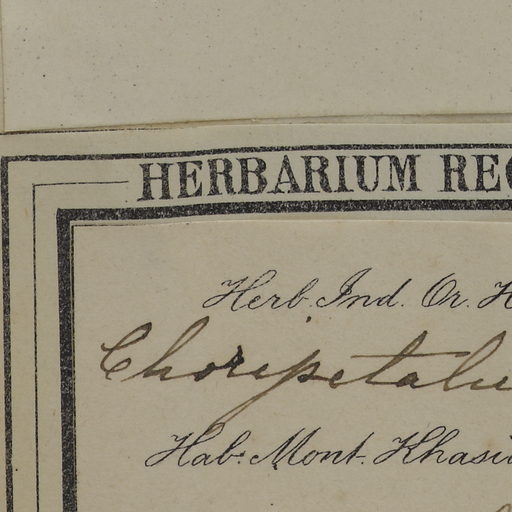 HERBARIUM REG
Herb. Ind. Or. H
Choripetalu
Hab: Mont. Khasi